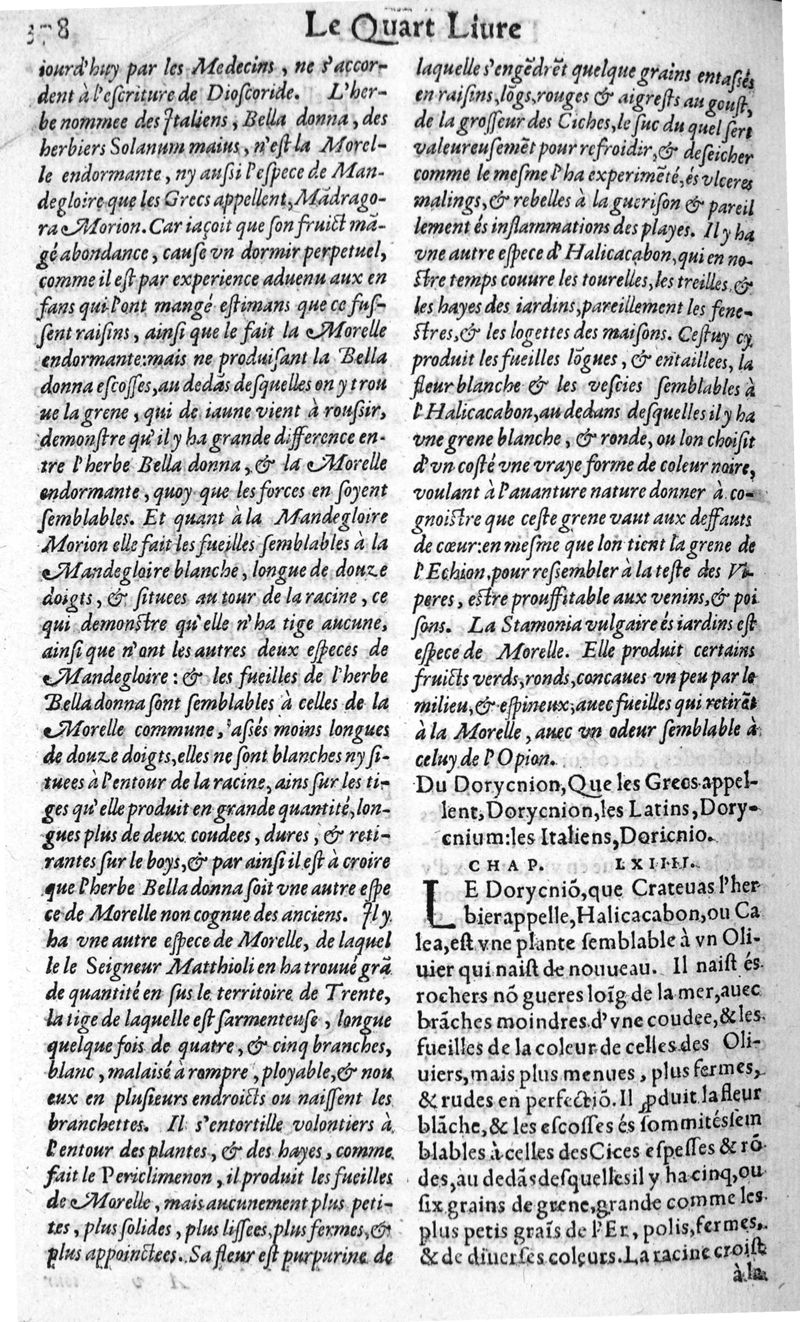 378
Le Quart Liure
iourd'huy par les Medecins, ne s'accor-
dent à l'escriture de Dioscoride. L'her-
be nommee des Italiens, Bella donna, des
herbiers Solanum maius, n'est la Morel-
le endormante, ny aussi l'espece de Man-
degloire que les Grecs appellent, Mãdrago-
ra Morion. Car iaçoit que son fruict mã-
gé abondance, cause vn dormir perpetuel,
comme il est par experience aduenu aux en
fans qui l'ont mangé estimans que ce fus-
sent raisins, ainsi que le fait la Morelle
endormante: mais ne produisant la Bella
donna escosses, au dedãs desquelles on y trou
ue la grene, qui de iaune vient à roussir,
demonstre qu'il y ha grande difference en-
tre l'herbe Bella donna, & la Morelle
endormante, quoy que les forces en soyent
semblables. Et quant à la Mandegloire
Morion elle fait les fueilles semblables à la
Mandegloire blanche, longue de douze
doigts, & situees au tour de la racine, ce
qui demonstre qu'elle n'ha tige aucune,
ainsi que n'ont les autres deux especes de
Mandegloire: & les fueilles de l'herbe
Belladonna sont semblables à celles de la
Morelle commune, asiés moins longues
de douze doigts, elles ne sont blanches ny si-
tuees à l'entour de la racine, ains sur les ti-
ges qu'elle produit en grande quantité, lon-
gues plus de deux coudees, dures, & reti-
rantes sur le boys, & par ainsi il est à croire
que l'herbe Bella donna soit vne autre espe
ce de Morelle non cognue des anciens. Il y
ha vne autre espece de Morelle, de laquel
le le Seigneur Matthioli en ha trouué grã
de quantité en sus le territoire de Trente,
la tige de laquelle est sarmenteuse, longue
quelque fois de quatre, & cinq branches,
blanc, malaisé à rompre, ployable, & nou
eux en plusieurs endroicts ou naissent les
branchettes. Il s'entortille volontiers à
l'entour des plantes, & des hayes, comme
fait le Periclimenon, il produit les fueilles
de Morelle, mais aucunement plus peti-
tes, plus solides, plus lissees, plus fermes, &
plus appoinctees. Sa fleur est purpurine de
laquelle s'engẽdrẽt quelque grains entassés
en raisins, lõgs, rouges & aigrests au goust,
de la grosseur des Ciches, le suc du quel sert
valeureusemẽt pour refroidir, & deseicher
comme le mesme l'ha experimẽté, és vlceres
malings, & rebelles à la guerison & pareil
lement és inflammations des playes. Il y ha
vne autre espece d'Halicacabon, qui en no-
stre temps couure les tourelles, les treilles &
les hayes des iardins, pareillement les fene-
stres, & les logettes des maisons. Cestuy cy
produit les fueilles lõgues, & entaillees, la
fleur blanche & les vescies semblables à
l'Halicacabon, au dedans desquelles il y ha
vne grene blanche, & ronde, ou lon choisit
d'vn costé vne vraye forme de coleur noire,
voulant à l'auanture nature donner à co-
gnoistre que ceste grene vaut aux deffauts
de cœur: en mesme que lon tient la grene de
l'Echion, pour ressembler à la teste des Vi-
peres, estre prouffitable aux venins, & poi
sons. La Stamonia vulgaire és iardins est
espece de Morelle. Elle produit certains
fruicts verds, ronds, concaues vn peu par le
milieu, & espineux, auec fueilles qui retirẽt
à la Morelle, auec vn odeur semblable à
celuy de l'Opion.
Du Dorycnion, Que les Grecs appel-
lent, Dorycnion, les Latins, Dory-
cnium: les Italiens, Doricnio.
CHAP. LXIIII.
LE Dorycniõ, que Crateuas l'her
bier appelle, Halicacabon, ou Ca
lea, est vne plante semblable à vn Oli-
uier qui naist de nouueau. Il naist és
rochers nõ gueres loĩg de la mer, auec
brãches moindres d'vne coudee, & les
fueilles de la coleur de celles des Oli-
uiers, mais plus menues, plus fermes,
& rudes en perfectiõ. Il ꝓduit la fleur
blãche, & les escosses és sommités sem
blables à celles des Cices espesses & rõ-
des, au dedãs desquelles il y ha cinq, ou
six grains de grene, grande comme les
plus petis graĩs de l'Er, polis, fermes,
& de diuerses coleurs. La racine croist
à la